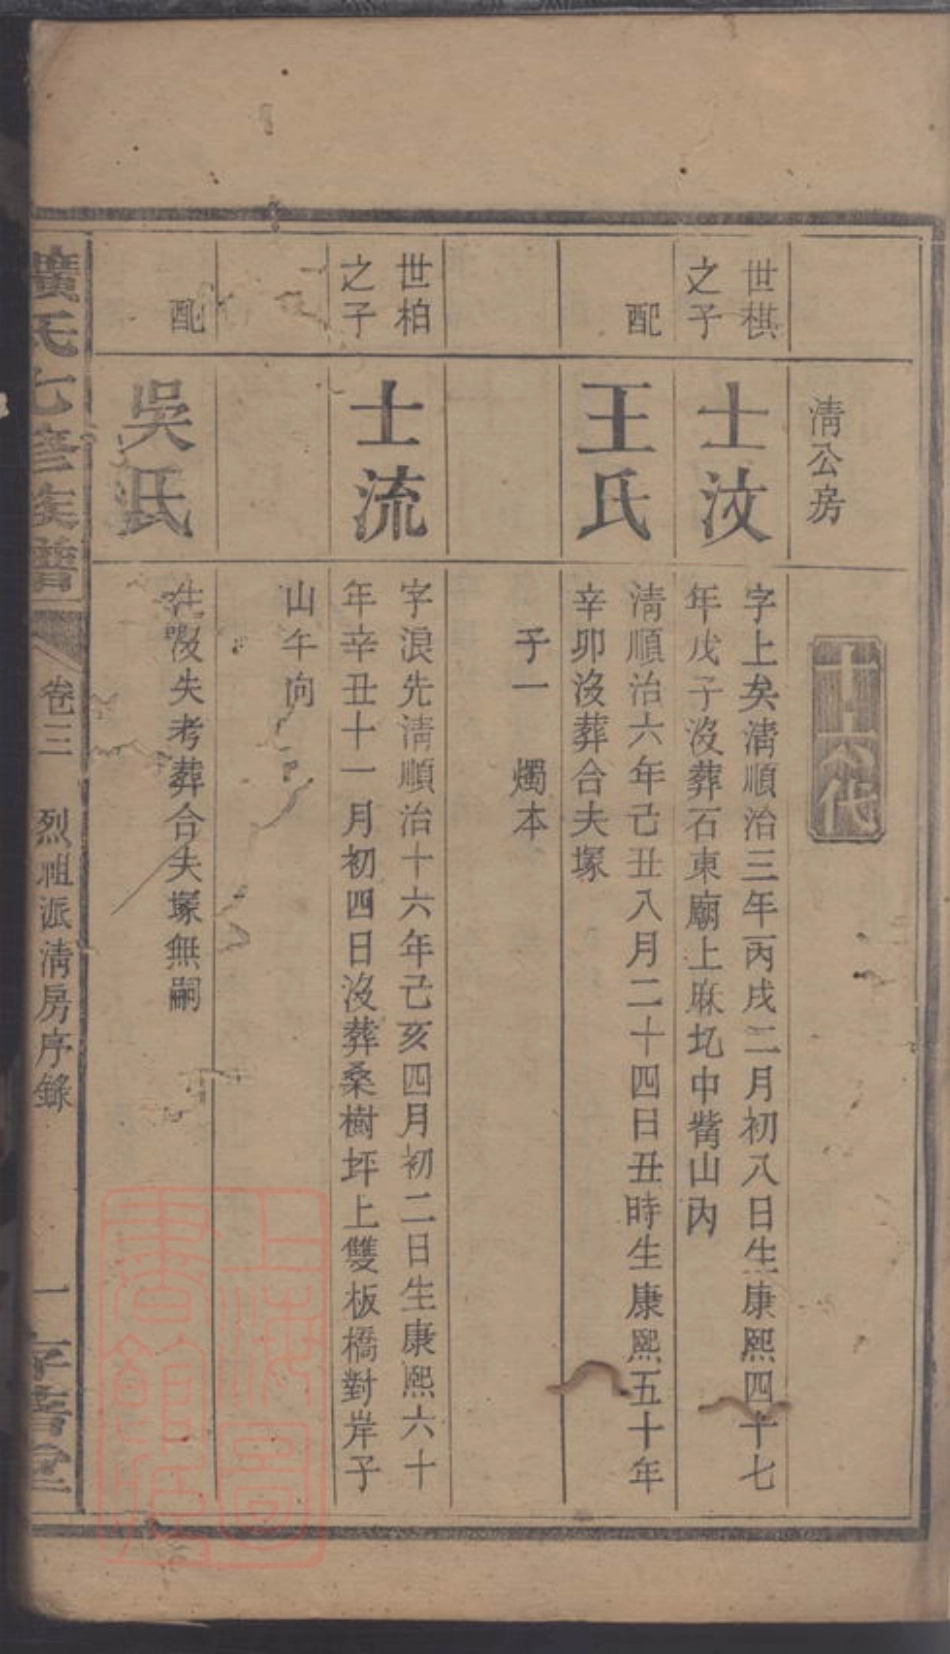 清公房
十六代
世棋
之子
士汶
字上矣清順治三年丙戌二月初八日生康熙四十七
年戊子沒葬石東廟上麻圠中觜山內
配
王氏
清順治六年己丑八月二十四日丑時生康熙五十年
辛卯沒葬合夫塚
子一　燭本
世柏
之子
士流
字浪先清順治十六年己亥四月初二日生康熙六十
年辛丑十一月初四日沒葬桑樹坪上雙板橋對岸子
山午向
配
吳氏
生歿失考葬合夫塚無嗣
氏七修族譜
卷三
烈祖派清房序錄
一
上海圖
書館藏